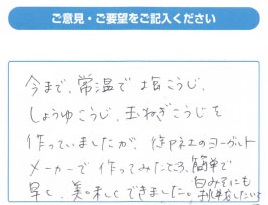 ご意見・ご要望をご記入ください
今まで、常温で塩こうじ、
しょうゆこうじ、玉ねぎこうじを
作っていましたが、御社のヨーグルト
メーカーで作ってみたところ、簡単で
早く、美味しくできました。白みそにも
挑戦をしたいです